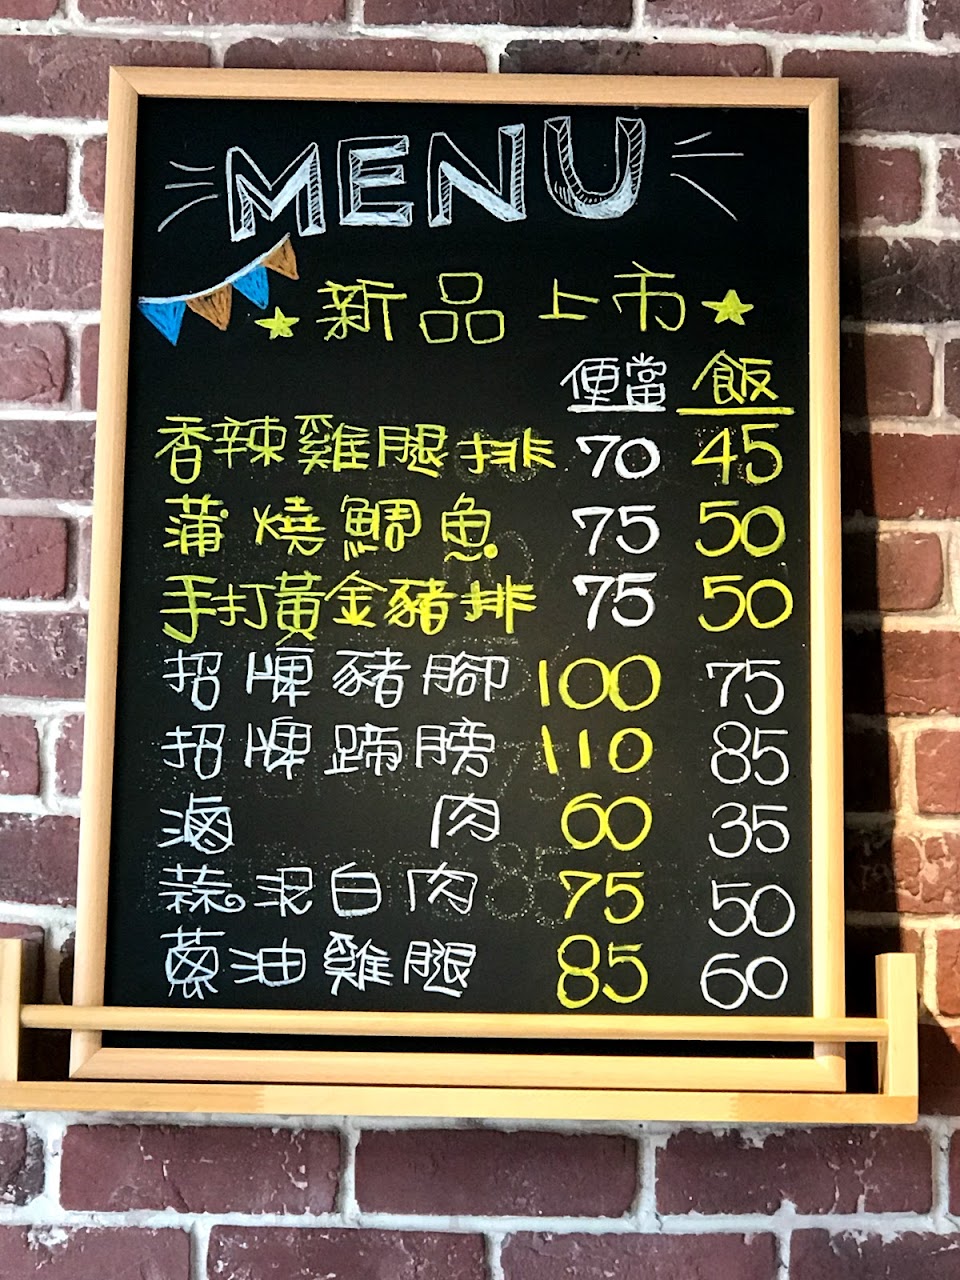 MENU
新品上市
便當 飯
香辣雞腿排 70 45
蒲燒鯛魚 75 50
手打黃金豬排 75 50
招牌豬腳 100 75
招牌蹄膀 110 85
滷肉 60 35
蒜泥白肉 75 50
蔥油雞腿 85 60